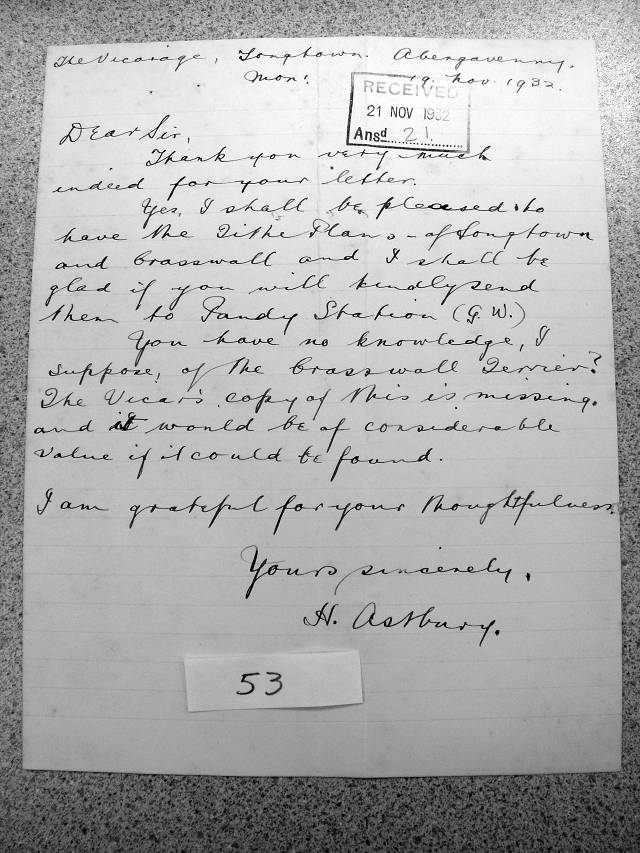 The Vicarage, Longtown. Abergavenny.
Mon:
19. Nov. 1932.
RECEIVED
21 NOV 1932
Ansd 21.
Dear Sir,
Thank you very much
indeed for your letter.
Yes, I shall be pleased to
have the Tithe Plans - of Longtown
and Crasswall and I shall be
glad if you will kindly send
them to Pandy Station (G.W.)
You have no knowledge, I
suppose, of the Crasswall Terrier?
The Vicar's copy of this is missing.
and it would be of considerable
value if it could be found.
I am grateful for your thoughtfulness.
Yours sincerely,
H. Astbury.
53